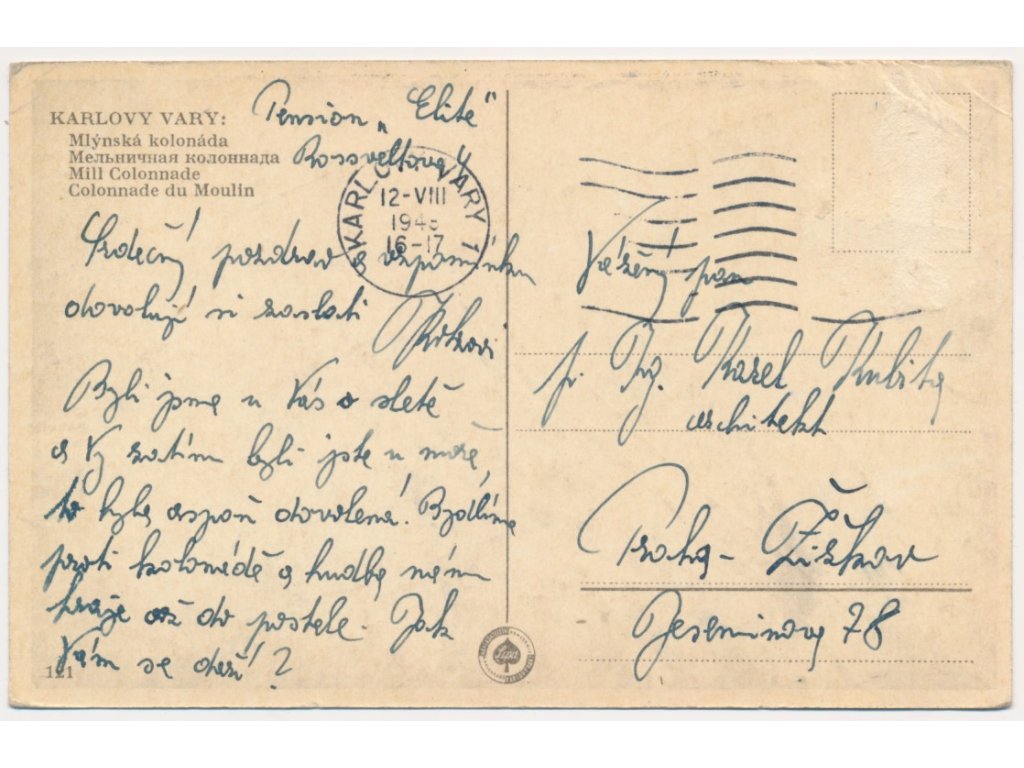 KARLOVY VARY:
Mlýnská kolonáda
Мельничная колоннада
Mill Colonnade
Colonnade du Moulin
Pension „Elite"
Rosveltova 4
KARLOVY VARY 1
12-VIII
16-17
Srdečný pozdrav a vzpomínku
dovolují si zaslati
Byli jsme u Vás o sletě
a Vy zatím byli jste u moře,
to byla aspoň dovolená. Bydlíme
proti kolonádě a hudba nám
hraje až do postele. Jak
Vám se daří?
121
Vážený pan
p. Ing. Karel Kubista
architekt
Praha - Žižkov
Jeseniova 78